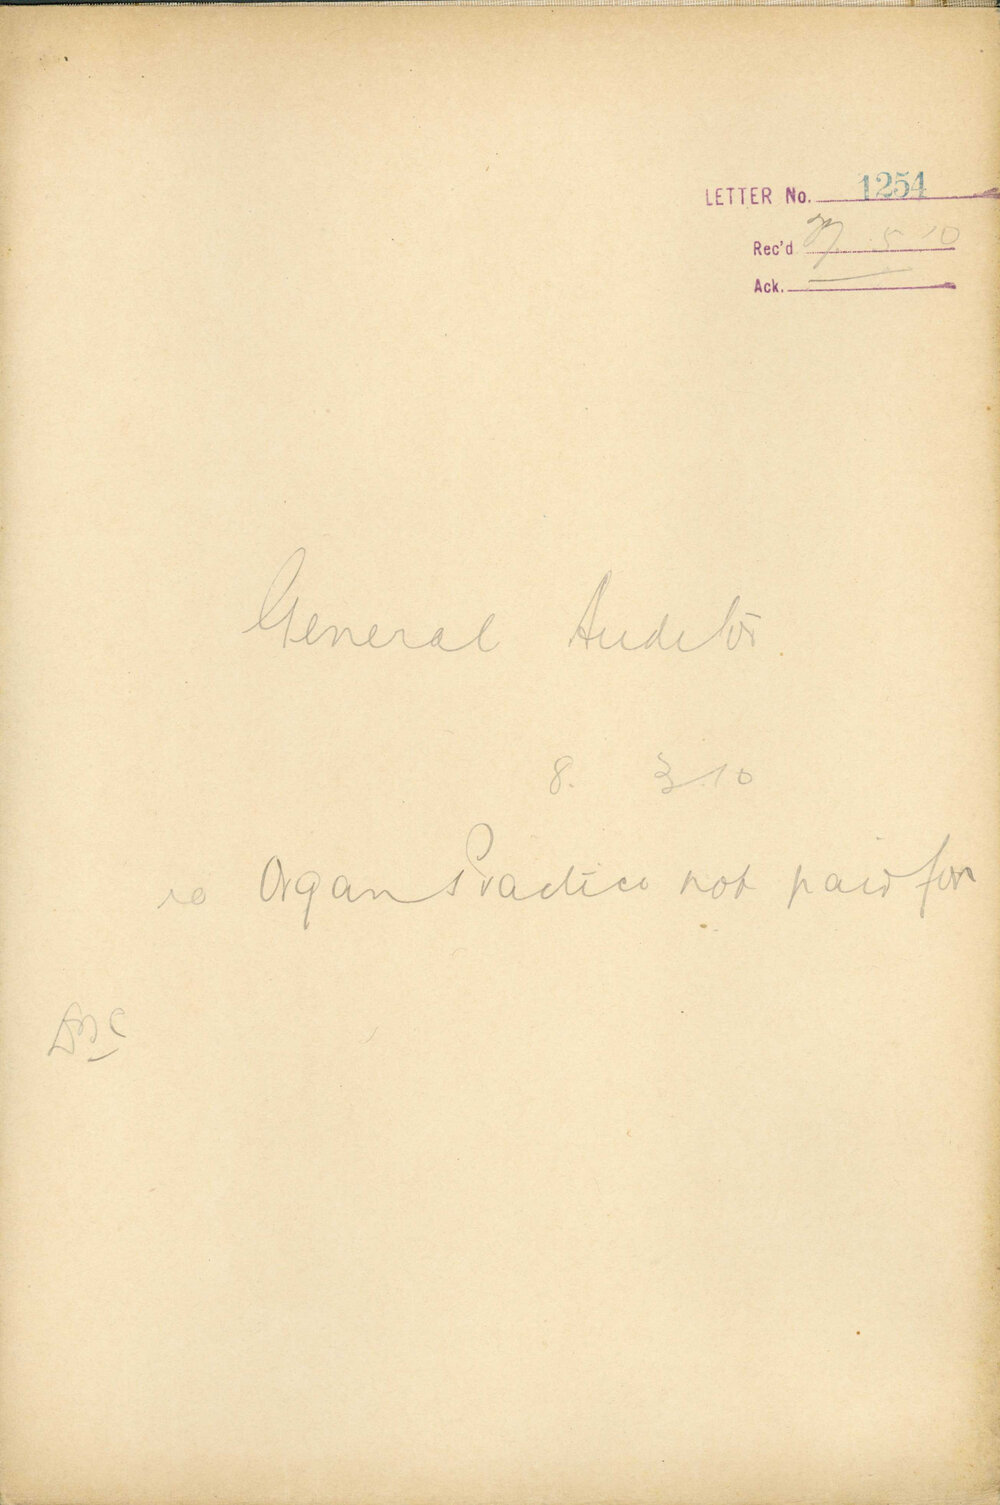 LETTER No. 1254
Rec'd 5 10
Ack.
General Auditor
8. 3 10
re Organ Practice not paid for